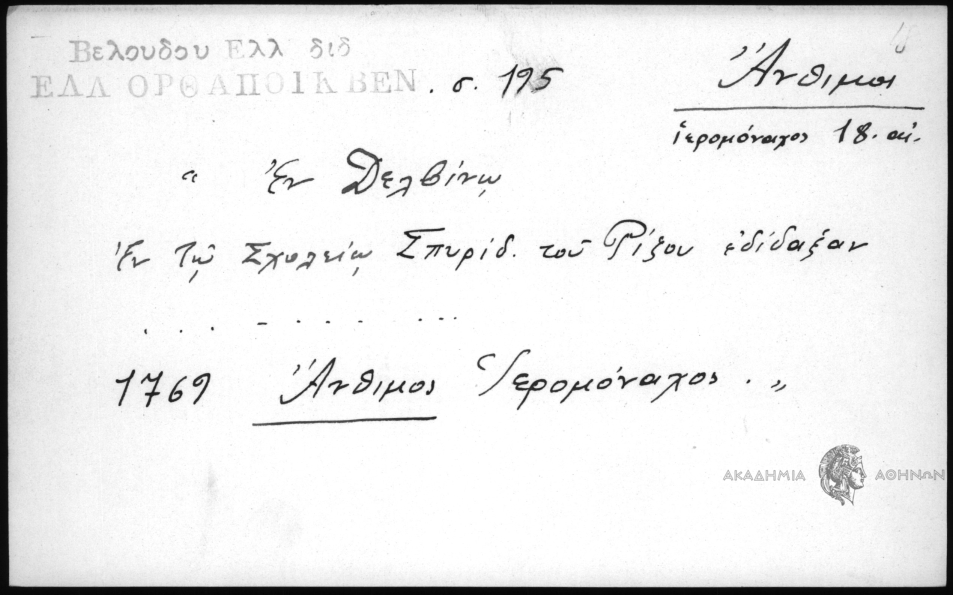 Βελουδου Ελλ διδ
ΕΛΛ ΟΡΘ ΑΠΟΙΚ ΒΕΝ. σ. 195
Ἄνθιμος
ἱερομόναχος 18. αἰ.
“ Ἐν Δελβίνῳ
Ἐν τῷ Σχολείῳ Σπυρίδ. τοῦ Ρίζου ἐδίδαξαν
. . . - . . . . ...
1769 Ἄνθιμος Ἱερομόναχος. „
ΑΚΑΔΗΜΙΑ ΑΘΗΝΩΝ